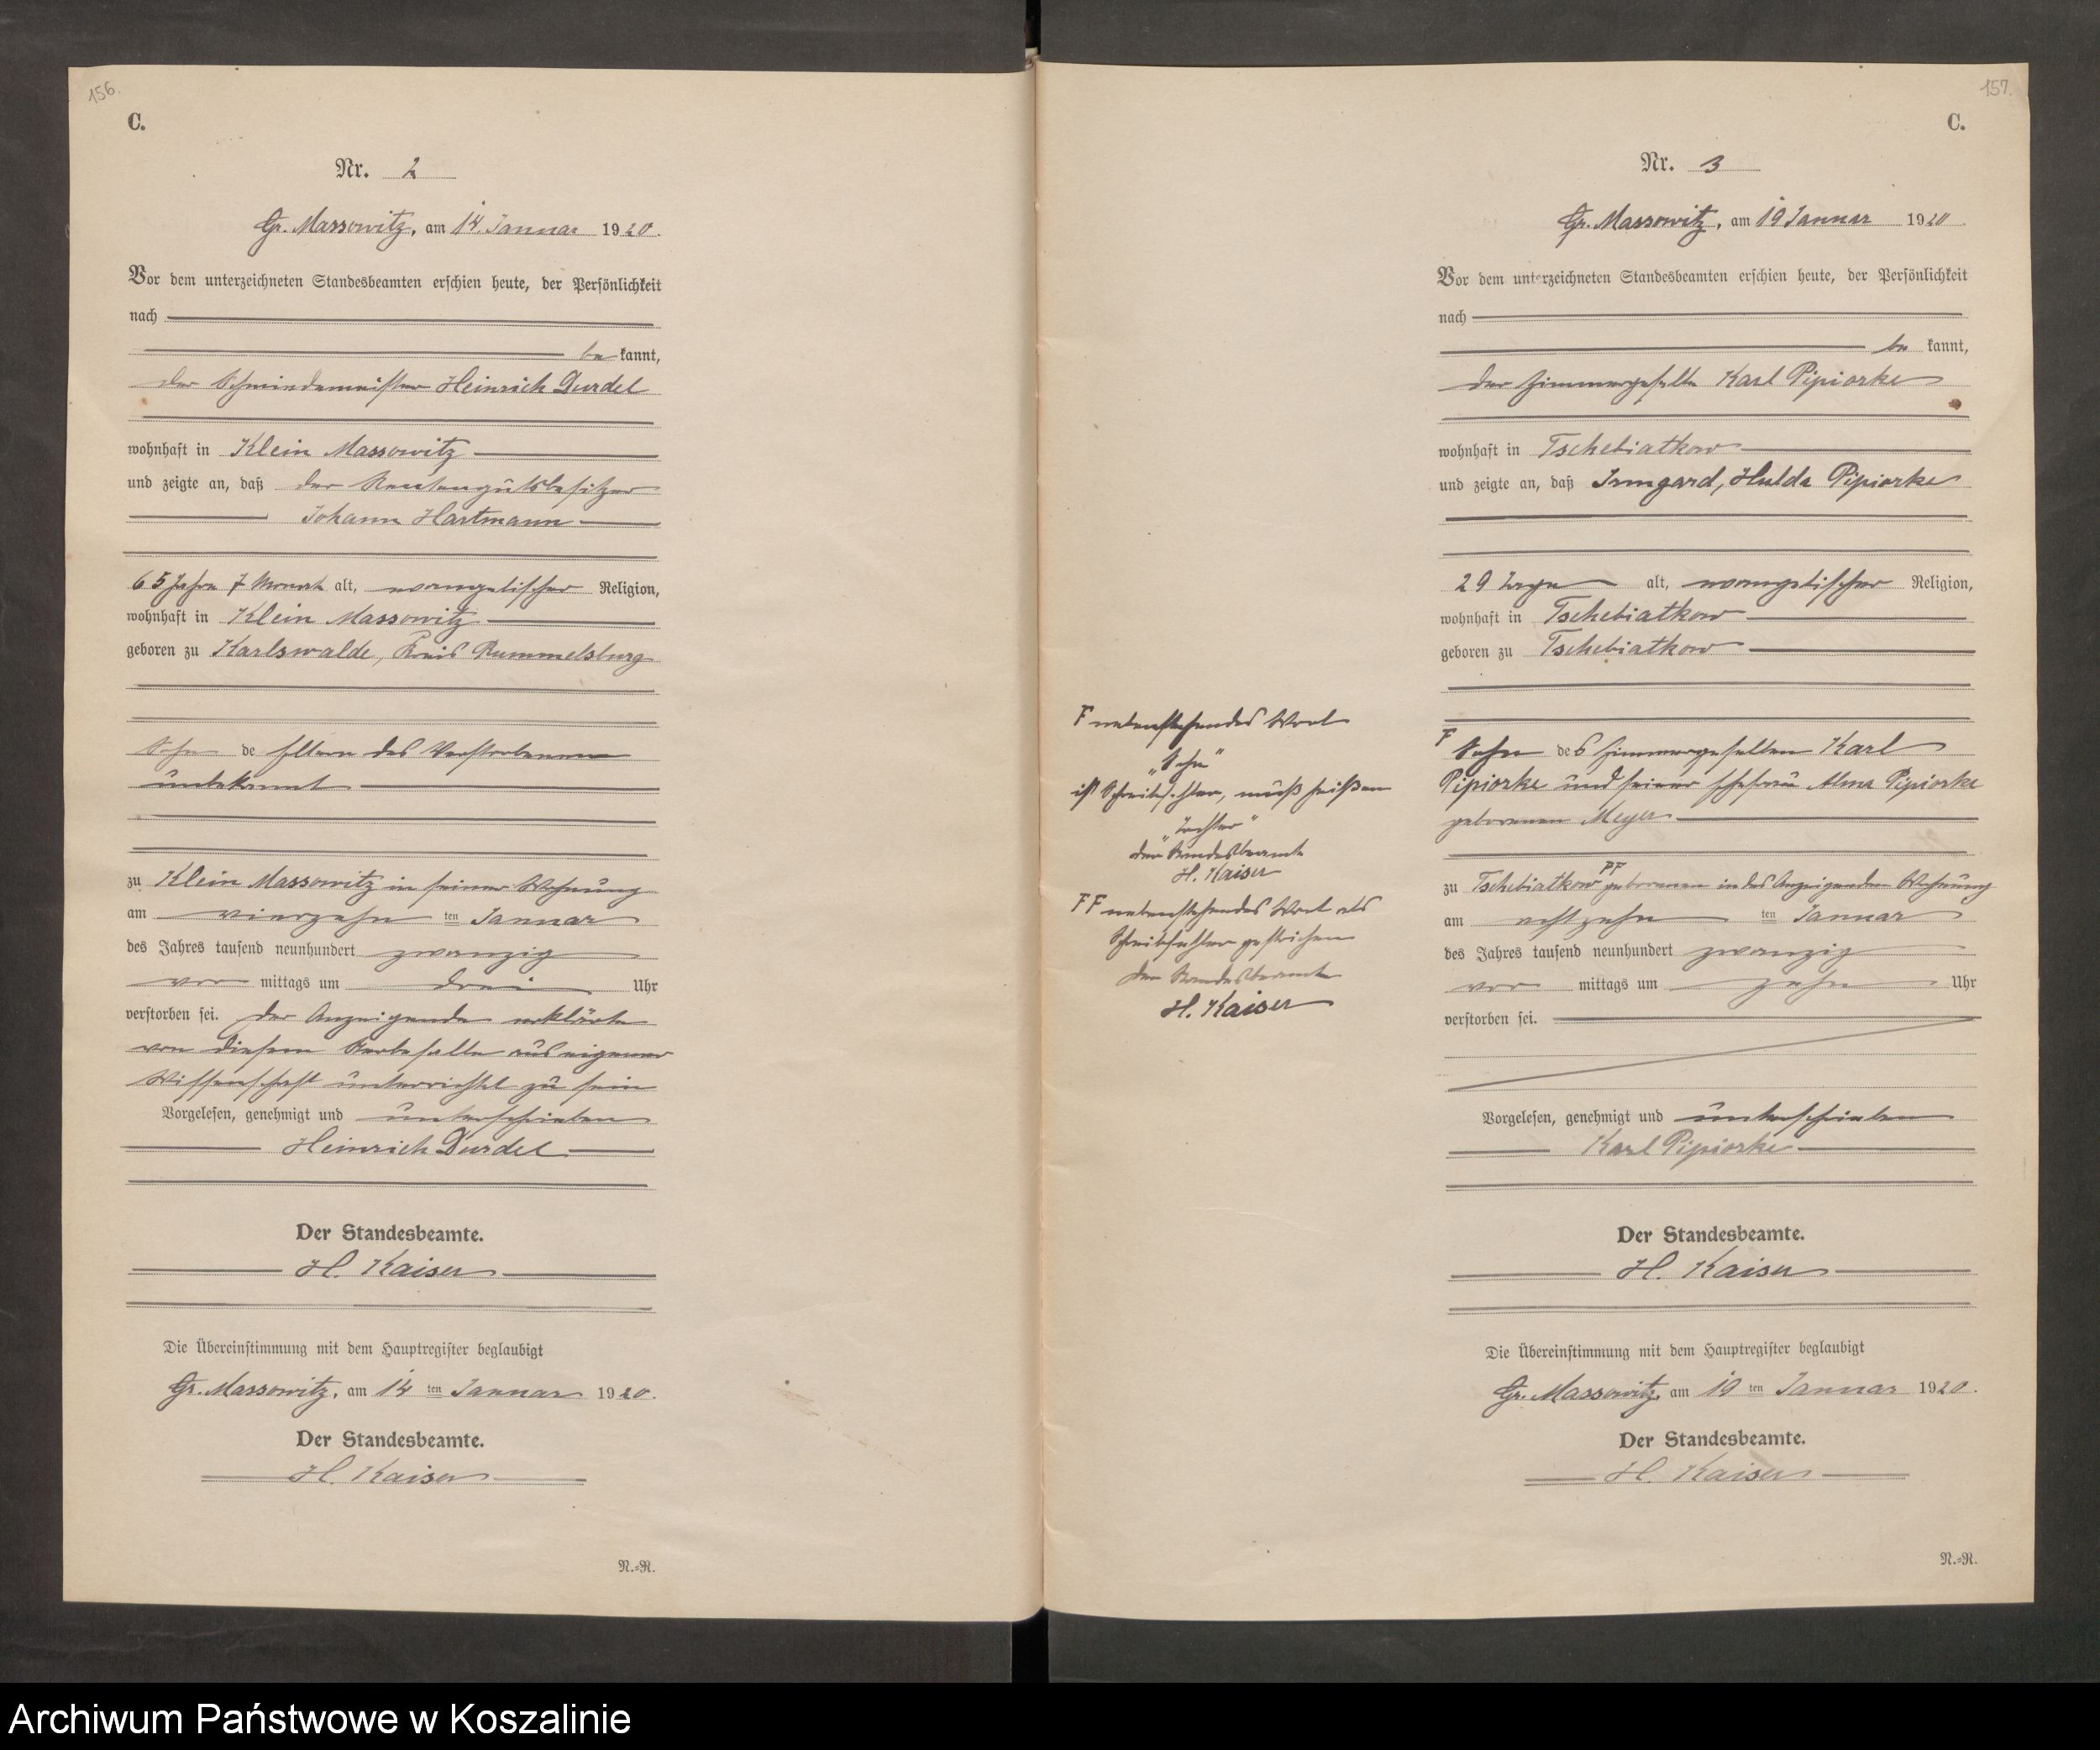 156.
C.
Nr. 2
Gr. Massowitz, am 14. Januar 1920.
Vor dem unterzeichneten Standesbeamten erschien heute, der Persönlichkeit
nach
be kannt,
der Schmiedemeister Heinrich Durdel
wohnhaft in Klein Massowitz
und zeigte an, daß der Rentengutsbesitzer
Johann Hartmann
65 Jahre 7 Monat alt, evangelischer Religion,
wohnhaft in Klein Massowitz
geboren zu Karlswalde, Kreis Rummelsburg
Sohn de Eltern des Verstorbenen
unbekannt
zu Klein Massowitz in seiner Wohnung
am vierzehn ten Januar
des Jahres tausend neunhundert zwanzig
vor mittags um drei Uhr
verstorben sei. Der Anzeigende erklärte
von diesem Sterbefalle aus eigener
Wissenschaft unterrichtet zu sein
Vorgelesen, genehmigt und unterschrieben
Heinrich Durdel
Der Standesbeamte.
H. Kaiser
Die Übereinstimmung mit dem Hauptregister beglaubigt
Gr. Massowitz, am 14 ten Januar 1920.
Der Standesbeamte.
H. Kaiser
N.=R.
157.
C.
Nr. 3
Gr. Massowitz, am 19 Januar 1920
Vor dem unterzeichneten Standesbeamten erschien heute, der Persönlichkeit
nach
be kannt,
der Zimmergeselle Karl Pipiorke
wohnhaft in Tschebiatkow
und zeigte an, daß Irmgard, Hulda Pipiorke
29 Tage alt, evangelischer Religion,
wohnhaft in Tschebiatkow
geboren zu Tschebiatkow
F Sohn des Zimmergesellen Karl
Pipiorke und seiner Ehefrau Alma Pipiorke
geborenen Meyer
zu Tschebiatkow FF geborenen in des Anzeigenden Wohnung
am achtzehn ten Januar
des Jahres tausend neunhundert zwanzig
vor mittags um zehn Uhr
verstorben sei.
Vorgelesen, genehmigt und unterschrieben
Karl Pipiorke
Der Standesbeamte.
H. Kaiser
Die Übereinstimmung mit dem Hauptregister beglaubigt
Gr. Massowitz, am 19 ten Januar 1920.
Der Standesbeamte.
H. Kaiser
N.=R.
F nebenstehendes Wort
„Sohn"
ist Schreibfehler, muß heißen
„Tochter"
der Standesbeamte
H. Kaiser
FF nebenstehendes Wort als
Schreibfehler gestrichen
der Standesbeamte
H. Kaiser
Archiwum Państwowe w Koszalinie